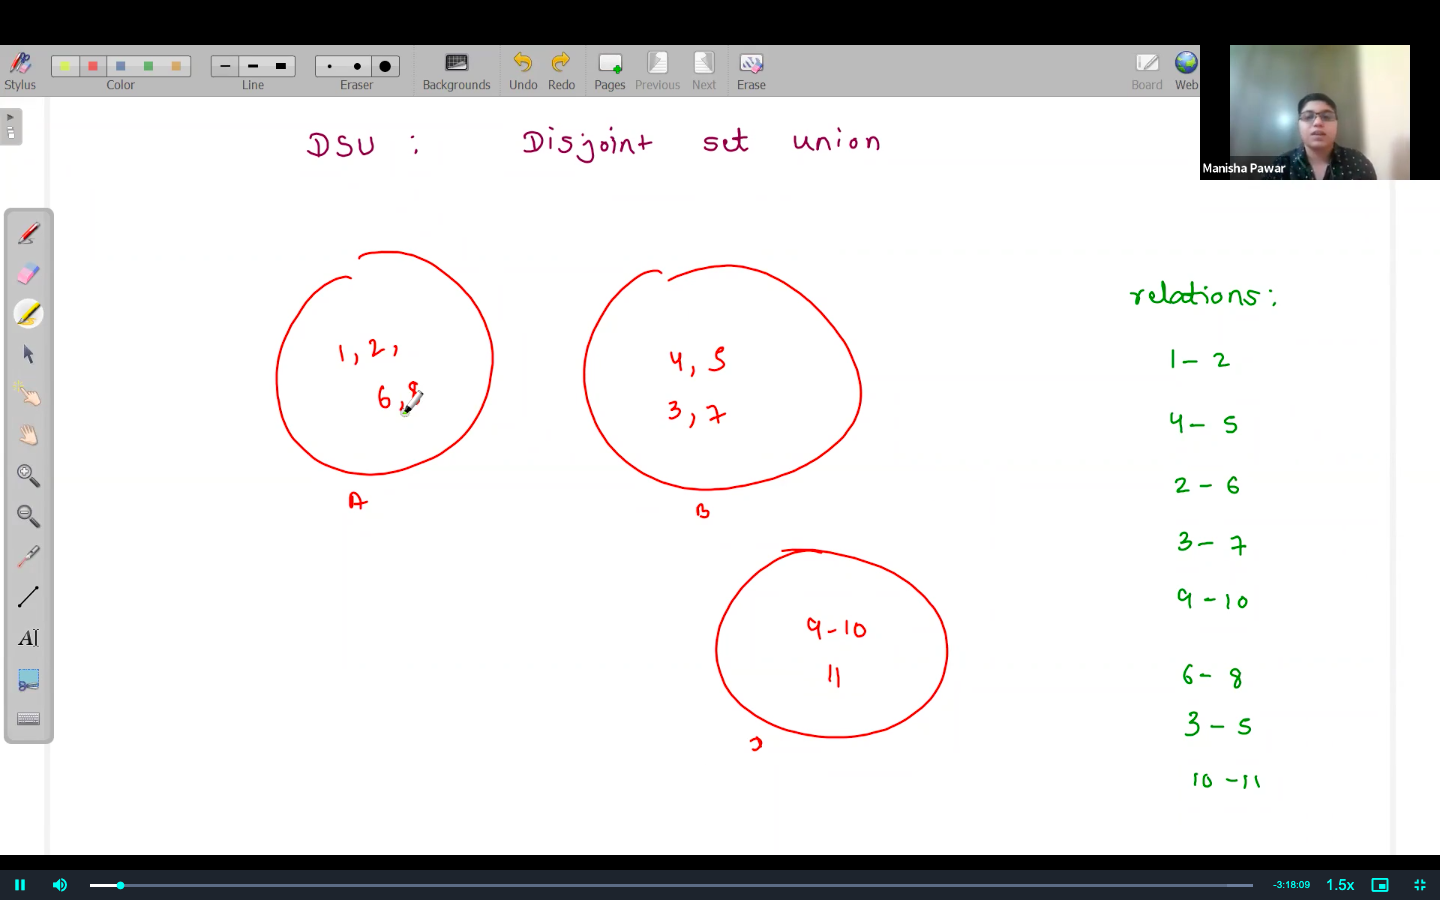 Stylus
Color
Line
Eraser
Backgrounds
Undo
Redo
Pages
Previous
Next
Erase
Board
Web
Manisha Pawar
DSU : Disjoint set union
1, 2,
6, 8
A
4, 5
3, 7
B
9-10
11
relations:
1 - 2
4 - 5
2 - 6
3 - 7
9 - 10
6 - 8
3 - 5
10 - 11
AI
-3:18:09
1.5x